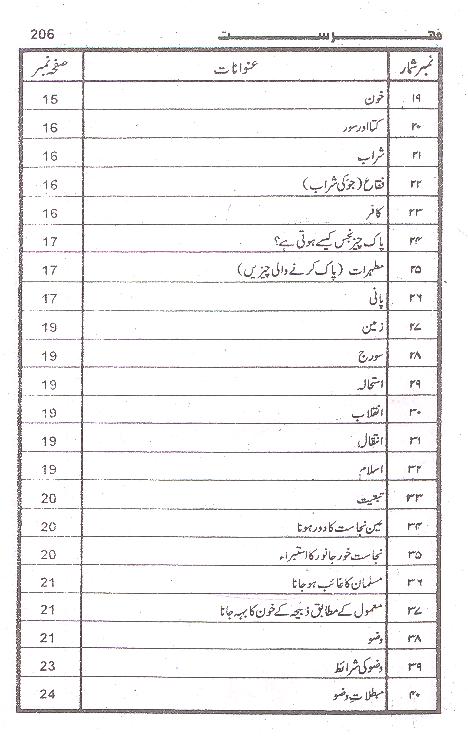 فہرست 206
نمبر شمار عنوانات صفحہ نمبر
۱۹ خون 15
۲۰ کتا اور سور 16
۲۱ شراب 16
۲۲ فقاع (جو کی شراب) 16
۲۳ کافر 16
۲۴ پاک چیز نجس کیسے ہوتی ہے؟ 17
۲۵ مطہرات (پاک کرنے والی چیزیں) 17
۲۶ پانی 17
۲۷ زمین 19
۲۸ سورج 19
۲۹ استحالہ 19
۳۰ انقلاب 19
۳۱ انتقال 19
۳۲ اسلام 19
۳۳ تبعیت 20
۳۴ عین نجاست کا دور ہونا 20
۳۵ نجاست خور جانور کا استبراء 20
۳۶ مسلمان کا غائب ہو جانا 21
۳۷ معمول کے مطابق ذبیحہ کے خون کا بہہ جانا 21
۳۸ وضو 21
۳۹ وضو کی شرائط 23
۴۰ مبطلات وضو 24